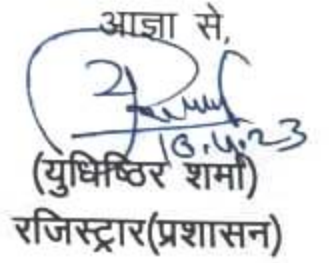 आज्ञा से,
18.4.23
(युधिष्ठिर शर्मा)
रजिस्ट्रार(प्रशासन)